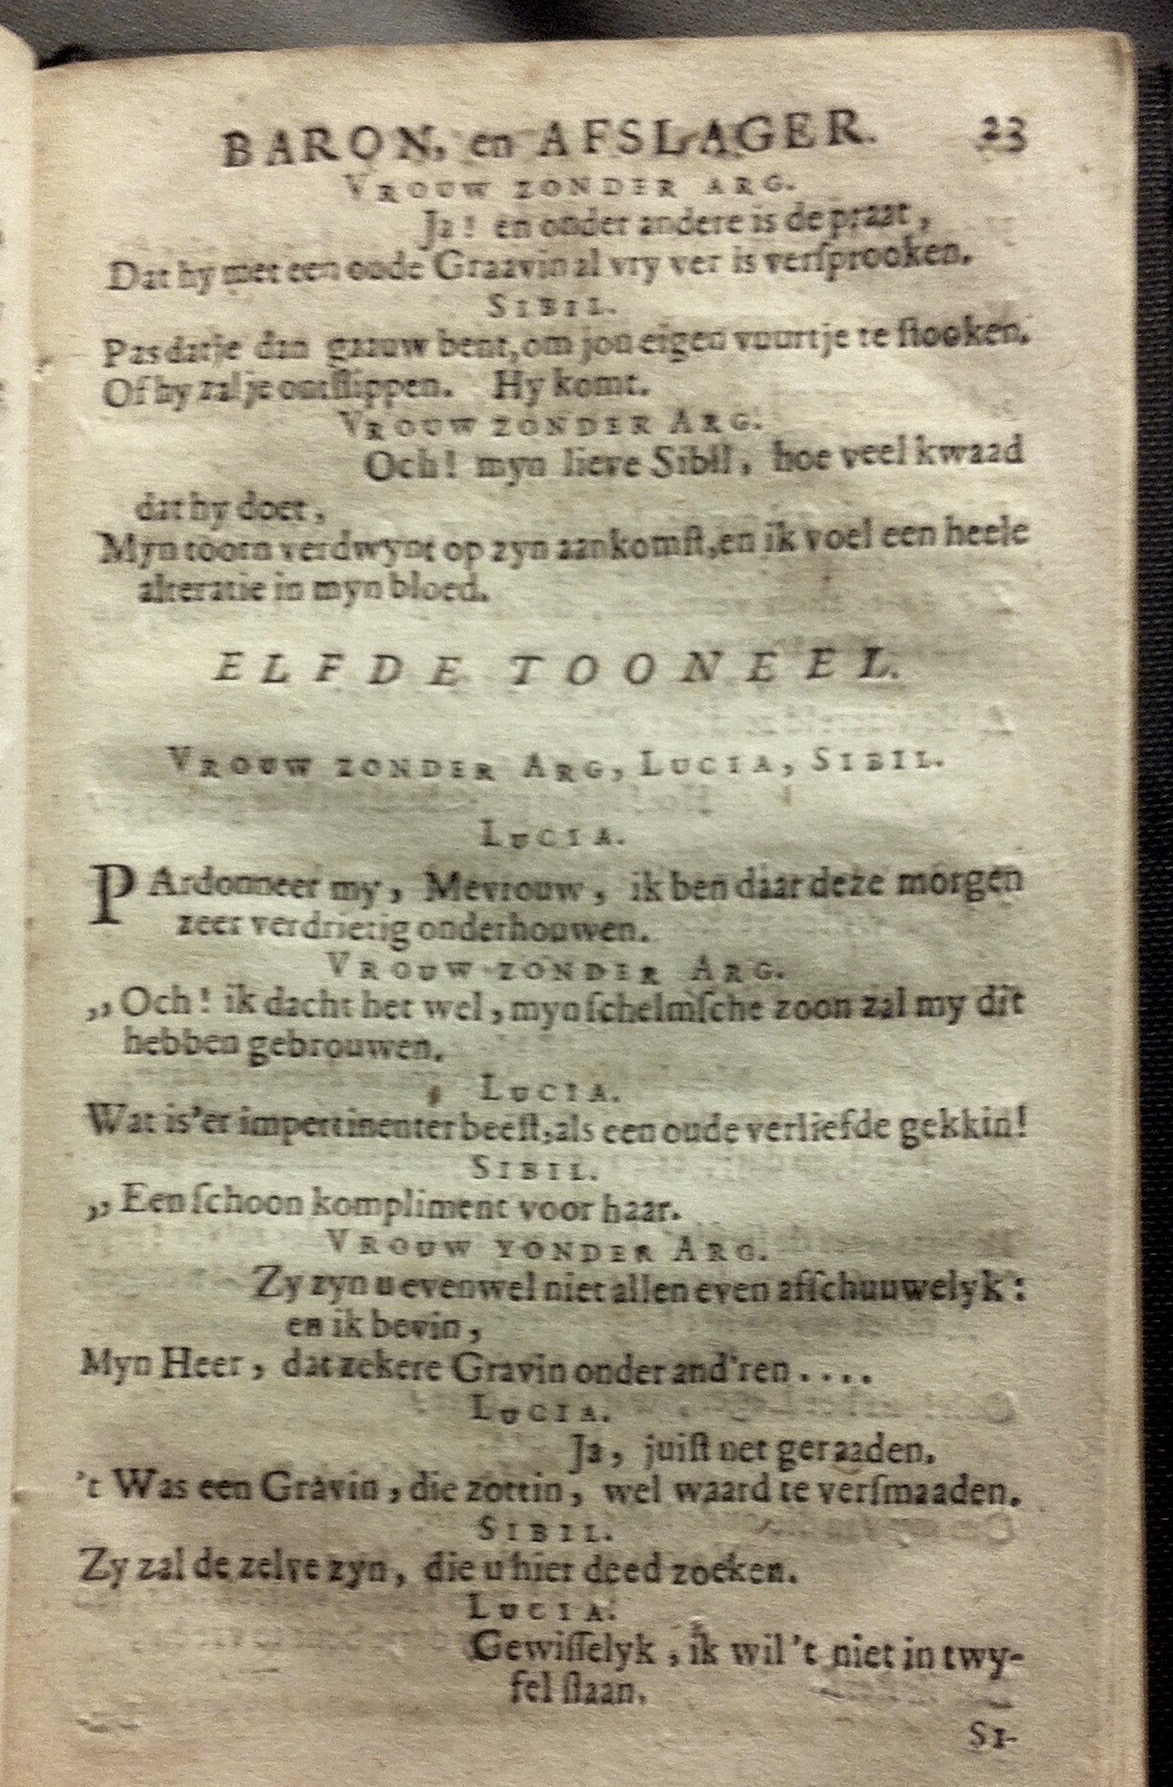 BARON, en AFSLAGER. 23
VROUW ZONDER ARG.
Ja! en onder andere is de praat,
Dat hy met een oude Graavin al vry ver is verſprooken.
SIBIL.
Pas datje dan gaauw bent, om jou eigen vuurtje te ſtooken.
Of hy zal je ontſlippen. Hy komt.
VROUW ZONDER ARG.
Och! myn lieve Sibil, hoe veel kwaad
dat hy doet,
Myn toorn verdwynt op zyn aankomſt, en ik voel een heele
alteratie in myn bloed.
ELFDE TOONEEL.
VROUW ZONDER ARG, LUCIA, SIBIL.
LUCIA.
PArdonneer my, Mevrouw, ik ben daar deze morgen
zeer verdrietig onderhouwen.
VROUW ZONDER ARG.
,, Och! ik dacht het wel, myn ſchelmſche zoon zal my dit
hebben gebrouwen.
LUCIA.
Wat is'er impertinenter beeſt, als een oude verliefde gekkin!
SIBIL.
,, Een ſchoon kompliment voor haar.
VROUW YONDER ARG.
Zy zyn u evenwel niet allen even afſchuuwelyk:
en ik bevin,
Myn Heer, dat zekere Gravin onder and'ren....
LUCIA.
Ja, juiſt net geraaden.
't Was een Gravin, die zottin, wel waard te verſmaaden.
SIBIL.
Zy zal de zelve zyn, die u hier deed zoeken.
LUCIA.
Gewiſſelyk, ik wil 't niet in twy-
fel ſlaan.
SI-